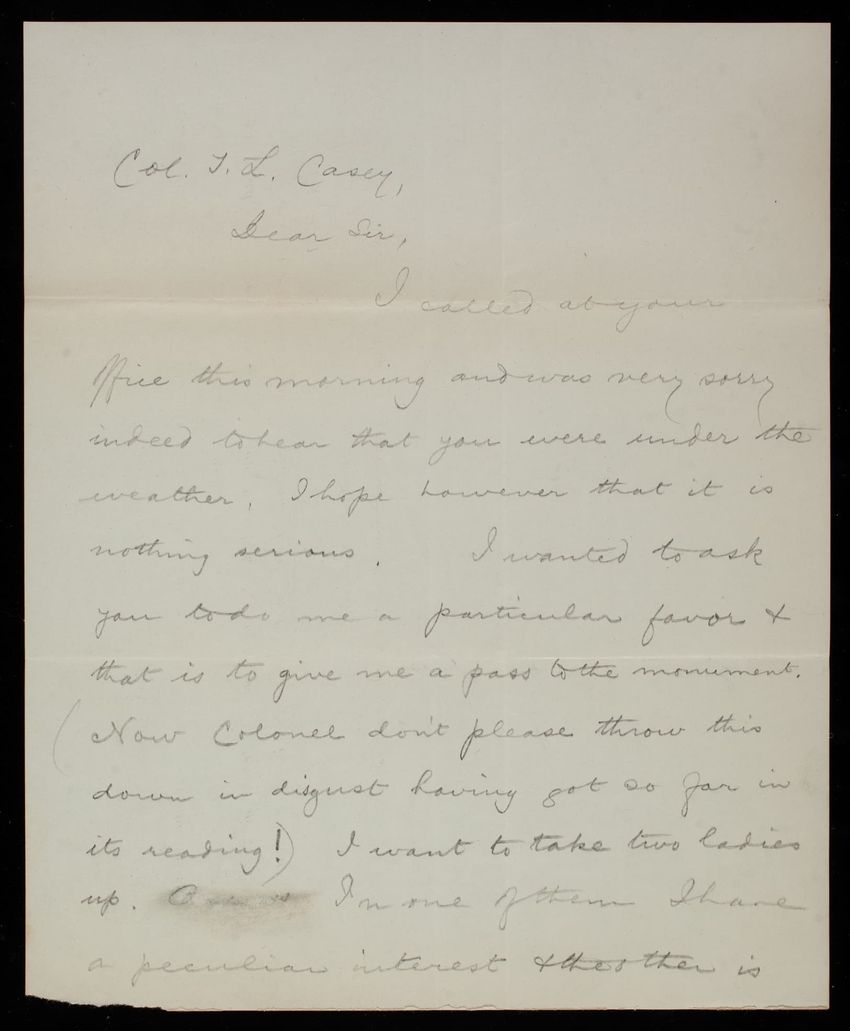 Col. T. L. Casey,
Dear Sir,
I called at your
office this morning and was very sorry
indeed to hear that you were under the
weather. I hope however that it is
nothing serious. I wanted to ask
you to do me a particular favor &
that is to give me a pass to the monument.
(Now Colonel don't please throw this
down in disgust having got so far in
its reading!) I want to take two ladies
up. In one of them I have
a peculiar interest & the other is